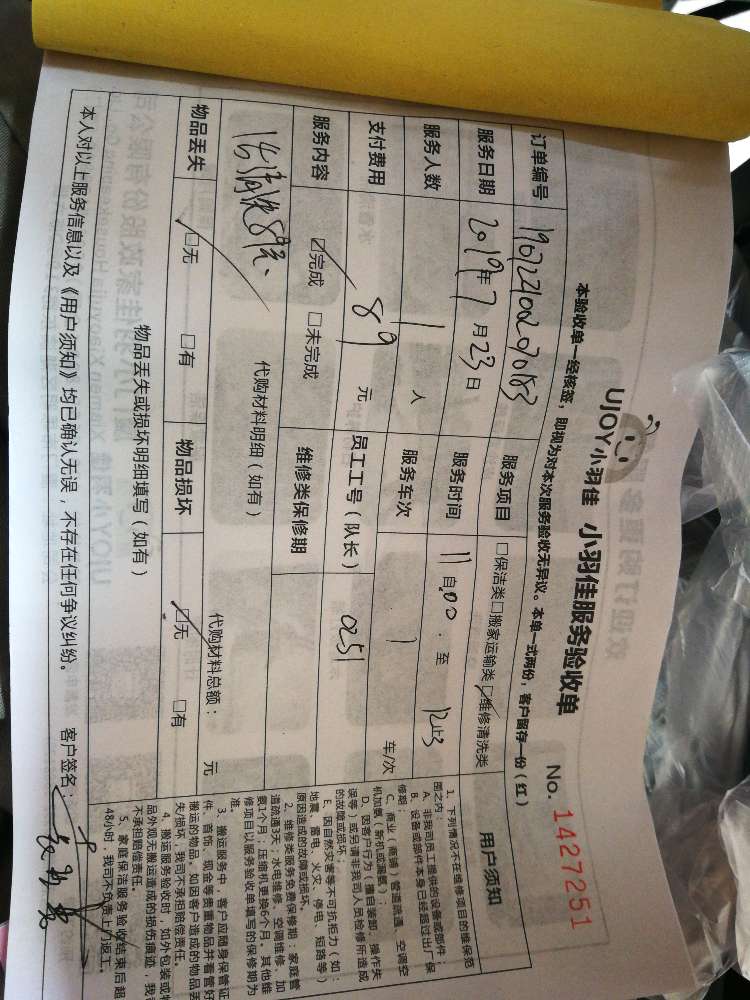 UJOY小羽佳 小羽佳服务验收单
No. 1427251
本验收单一经核签，即视为对本次服务验收无异议。本单一式两份，客户留存一份（红）
订单编号
服务项目 □保洁类□搬家运输类☑维修清洗类
服务日期 2019年7月23日 服务时间 11 自00 至
服务人数 1 人 服务车次 1 车/次
支付费用 89 元 员工工号（队长） 0251
服务内容 ☑完成 □未完成 维修类保修期
代购材料明细（如有） 代购材料总额： 元
物品丢失 ☑无 □有 物品损坏 ☑无 □有
物品丢失或损坏明细填写（如有）
本人对以上服务信息以及《用户须知》均已确认无误，不存在任何争议纠纷。 客户签名：
用户须知
1、下列情况不在维修项目的维保范
围之内：
A、非我司员工提供的设备或部件；
B、设备或部件本身已经超过出厂保
修期
C、商业（商铺）管道疏通、空调空
机加氨（新机或漏氨）；
D、因客户行为：擅自装卸、操作失
误等）或另请非我司人员检修所造成
的故障或损坏；
E、因自然灾害等不可抗拒力（如：
地震、雷电、火灾、停电、短路等）
原因造成的故障或损坏。
2、维修类服务免费保修期：家庭管
道疏通3天；水电维修、空调维修、加
氨1个月；压缩机更换6个月。其他维
修项目以服务验收单填写的保修期为
准。
3、搬运服务中，客户应随身保管证
件、首饰、现金等贵重物品并看管好
搬运的物品。如因客户造成的物品丢
失/损坏，我司不承担赔偿责任。
4、搬运服务验收时，如外包装或
品外观无搬运造成的损伤痕迹，我
不承担赔偿责任。
5、家庭保洁服务验收结束后超
48小时，我司不负责上门返工。